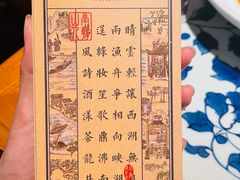 晴雲輕讓西湖無
雨漁舟爭相向映湖
逞綵妝笙歌鼎沸南
風詩酒漾茶龍井